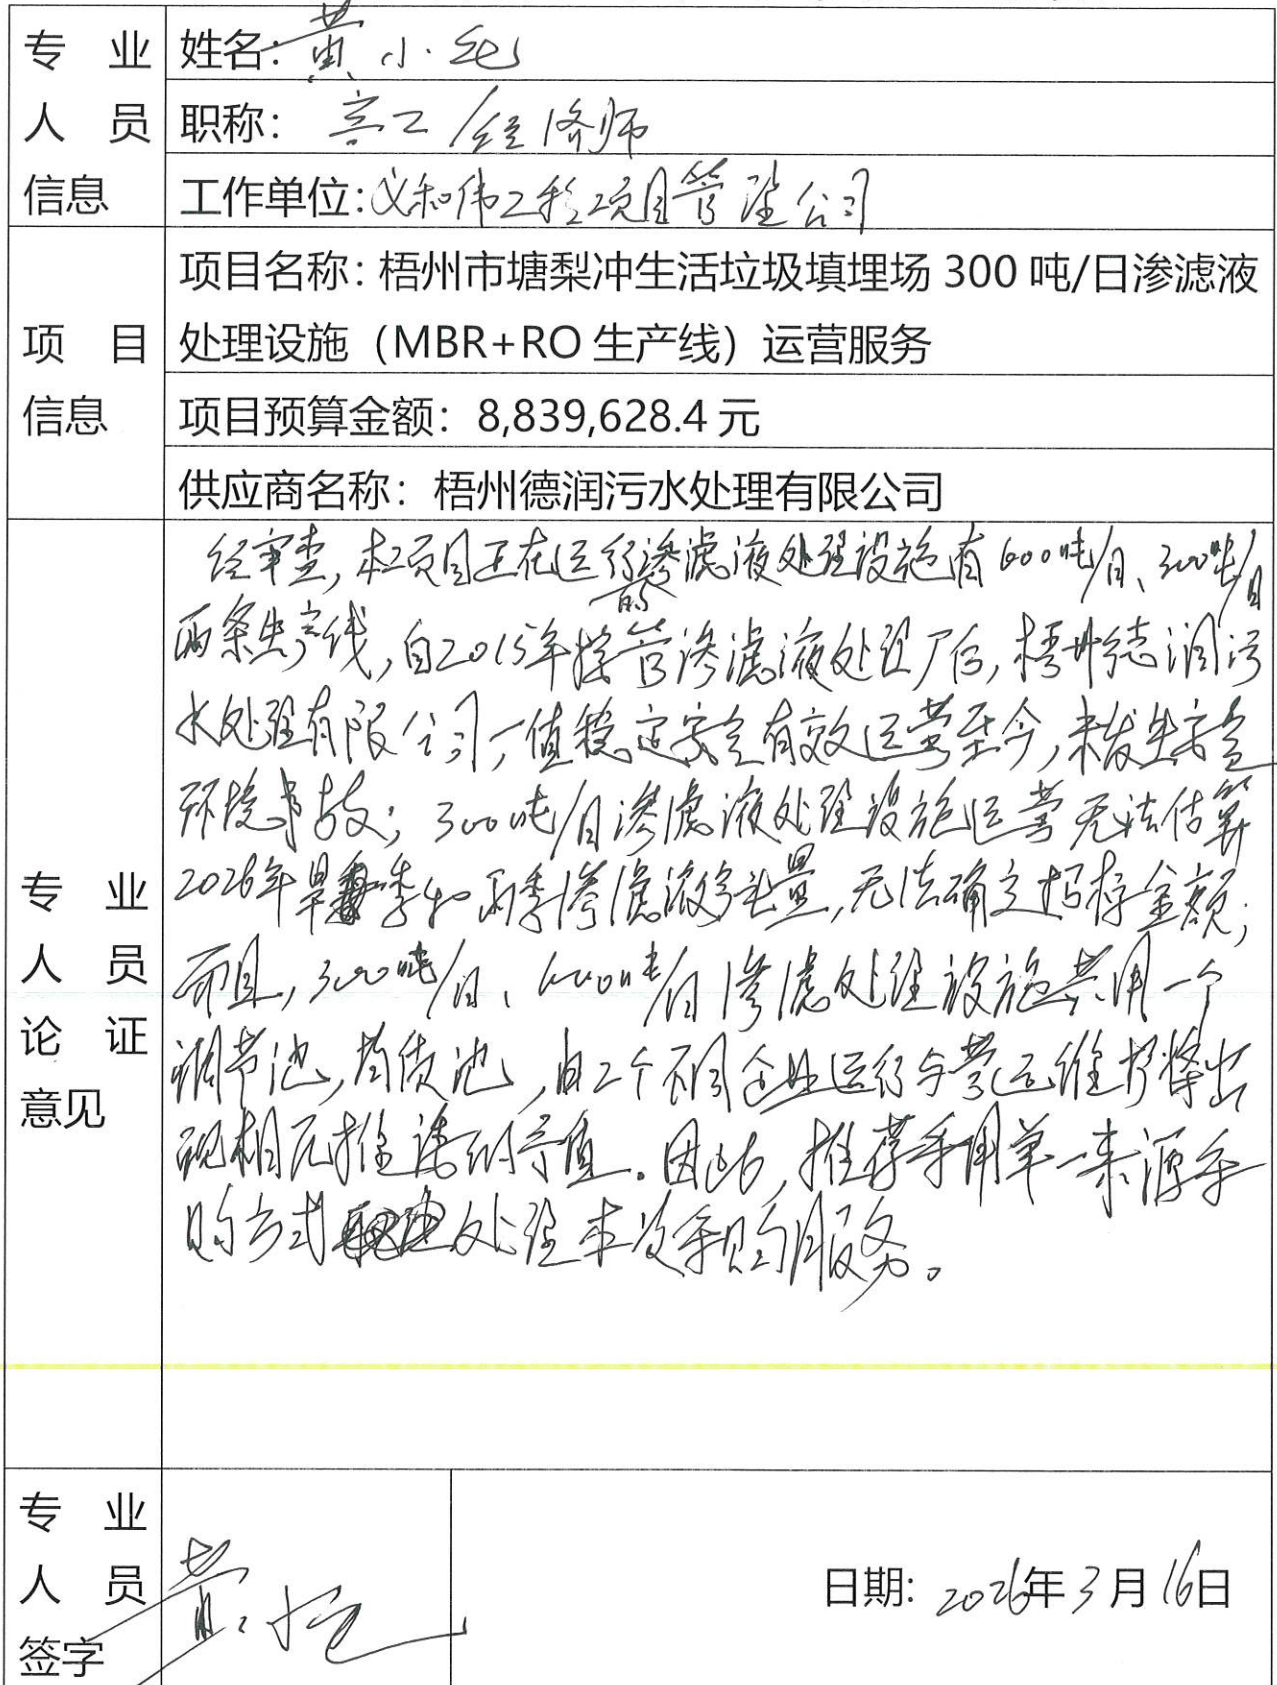 专业人员信息
姓名：黄小
职称：高工/经济师
工作单位：义和伟工程项目管理公司
项目信息
项目名称：梧州市塘梨冲生活垃圾填埋场 300 吨/日渗滤液
处理设施（MBR+RO 生产线）运营服务
项目预算金额：8,839,628.4 元
供应商名称：梧州德润污水处理有限公司
专业人员论证意见
经审查，本项目正在运行的渗滤液处理设施有600吨/日、300吨/日
两条生产线，自2015年接管渗滤液处理厂后，梧州德润污
水处理有限公司一值稳定安全有效运营至今，未发生安全
环境事故；300吨/日渗滤液处理设施运营无法估算
2026年旱季和雨季渗滤液产生量，无法确定招标金额；
而且，300吨/日、600吨/日渗滤处理设施共用一个
调节池，均质池，由2个不同企业运行与营运维护将出
现相互推诿的。因此，推荐采用单一来源采
购方式处理本次采购服务。
专业人员签字
黄小
日期: 2026年3月16日